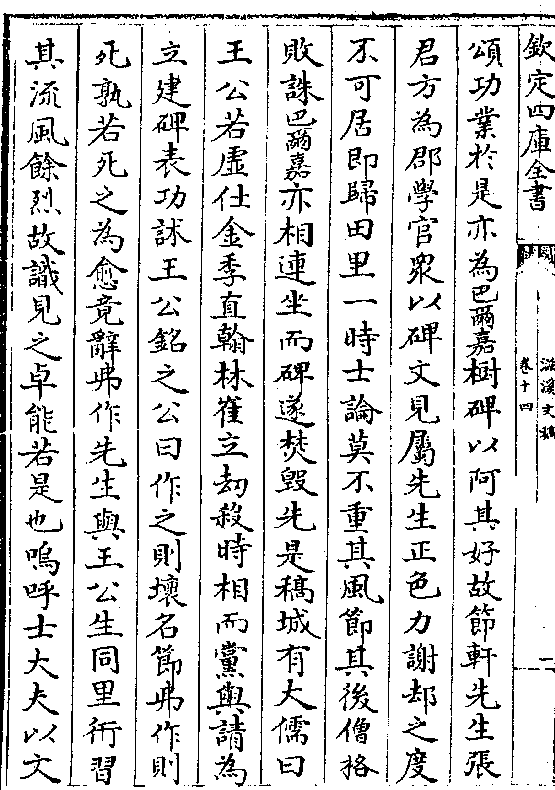 欽定四庫全書
滋溪文稿
卷十四
頌功業於是亦為巴爾嘉樹碑以阿其好故節軒先生張
君方為郡學官衆以碑文見屬先生正色力謝却之度
不可居即歸田里一時士論莫不重其風節其後僧格
敗誅巴爾嘉亦相連坐而碑遂焚毀先是稿城有大儒曰
王公若虛仕金季直翰林崔立刼殺時相而黨與請為
立建碑表功訹王公銘之公曰作之則壞名節弗作則
死孰若死之為愈竟辭弗作先生與王公生同里術習
其流風餘烈故識見之卓能若是也嗚呼士大夫以文